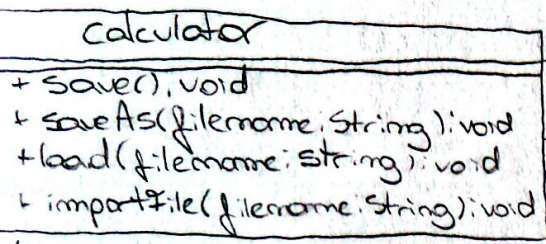 Calculator
+ save(), void
+ saveAs(filename: String): void
+ load(filename: String): void
+ importFile(filename: String): void